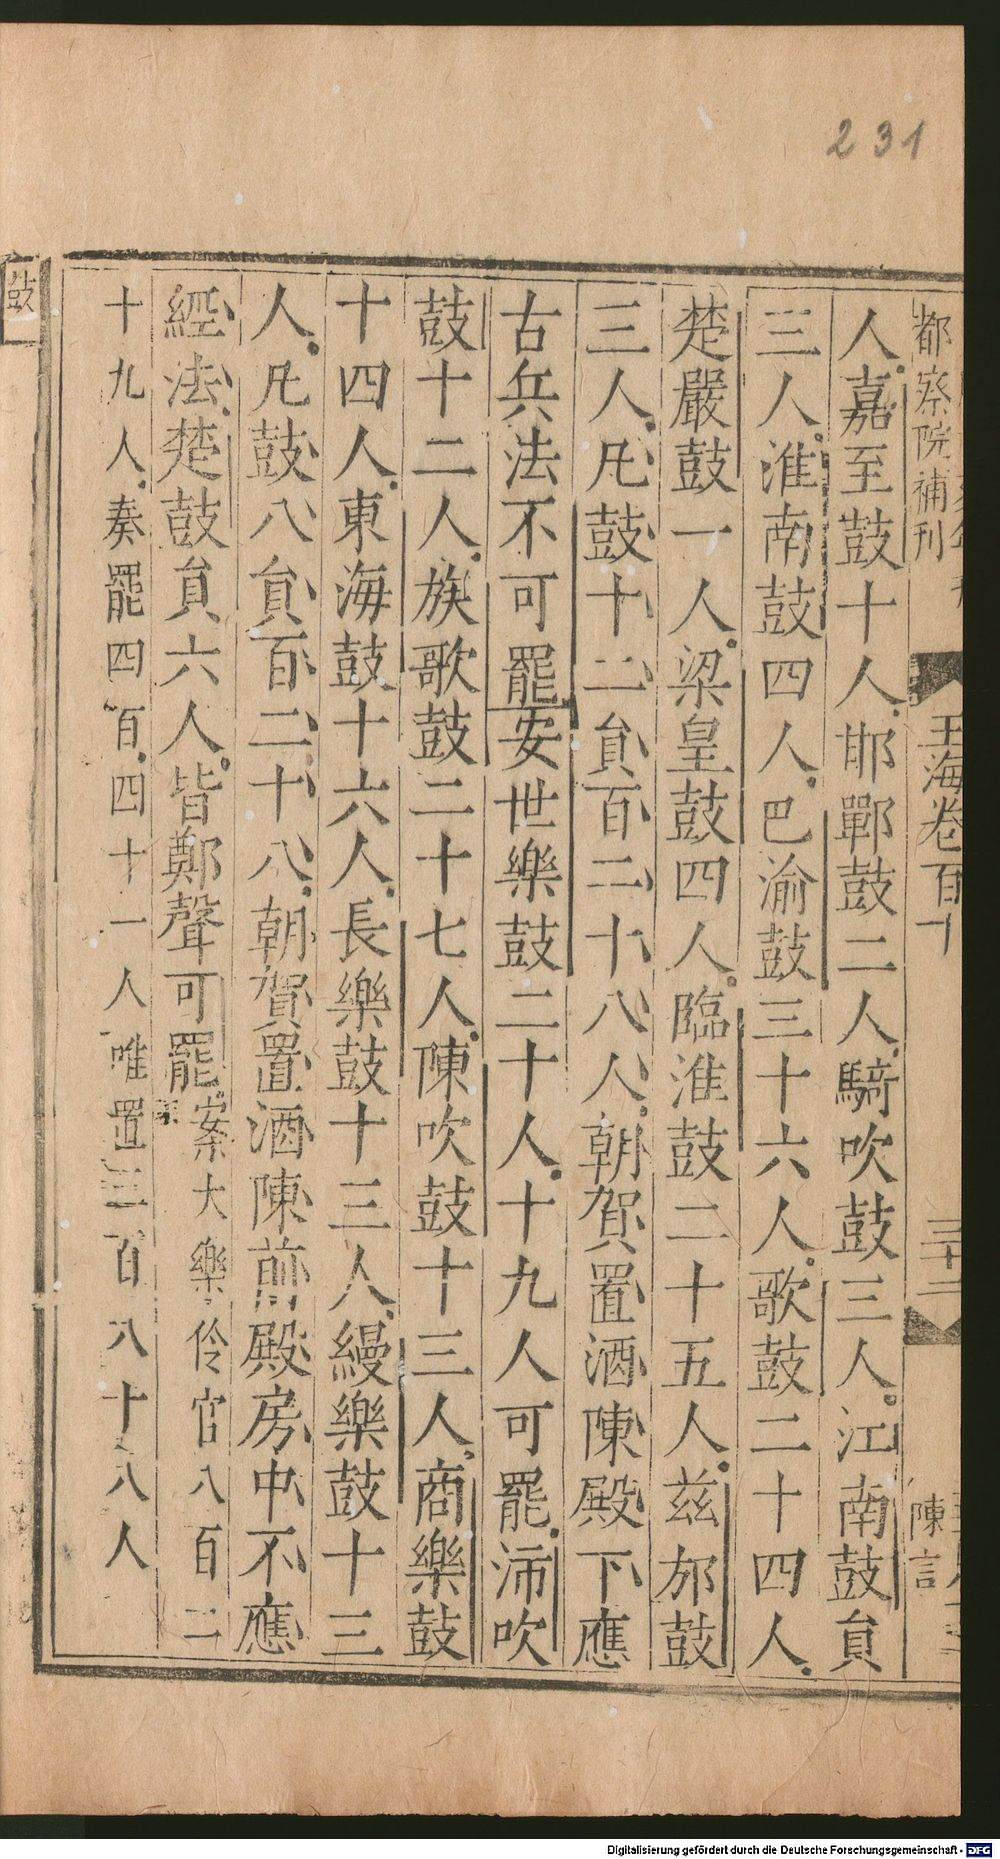 231
都察院補刊
玉海卷百十
三十二
陳言
人嘉至鼓十人邯鄲鼓二人騎吹鼓三人江南鼓員
三人淮南鼓四人巴渝鼓三十六人歌鼓二十四人
楚嚴鼓一人梁皇鼓四人臨淮鼓二十五人兹邡鼓
三人凡鼓十二員百二十八人朝賀置酒陳殿下應
古兵法不可罷安世樂鼓二十人十九人可罷沛吹
鼓十二人族歌鼓二十七人陳吹鼓十三人商樂鼓
十四人東海鼓十六人長樂鼓十三人縵樂鼓十三
人凡鼓八員百二十八朝賀置酒陳前殿房中不應
經法楚鼓員六人皆鄭聲可罷案大樂伶官八百二
十九人奏罷四百四十一人唯置三百八十八人
鼓
Digitalisierung gefördert durch die Deutsche Forschungsgemeinschaft - DFG